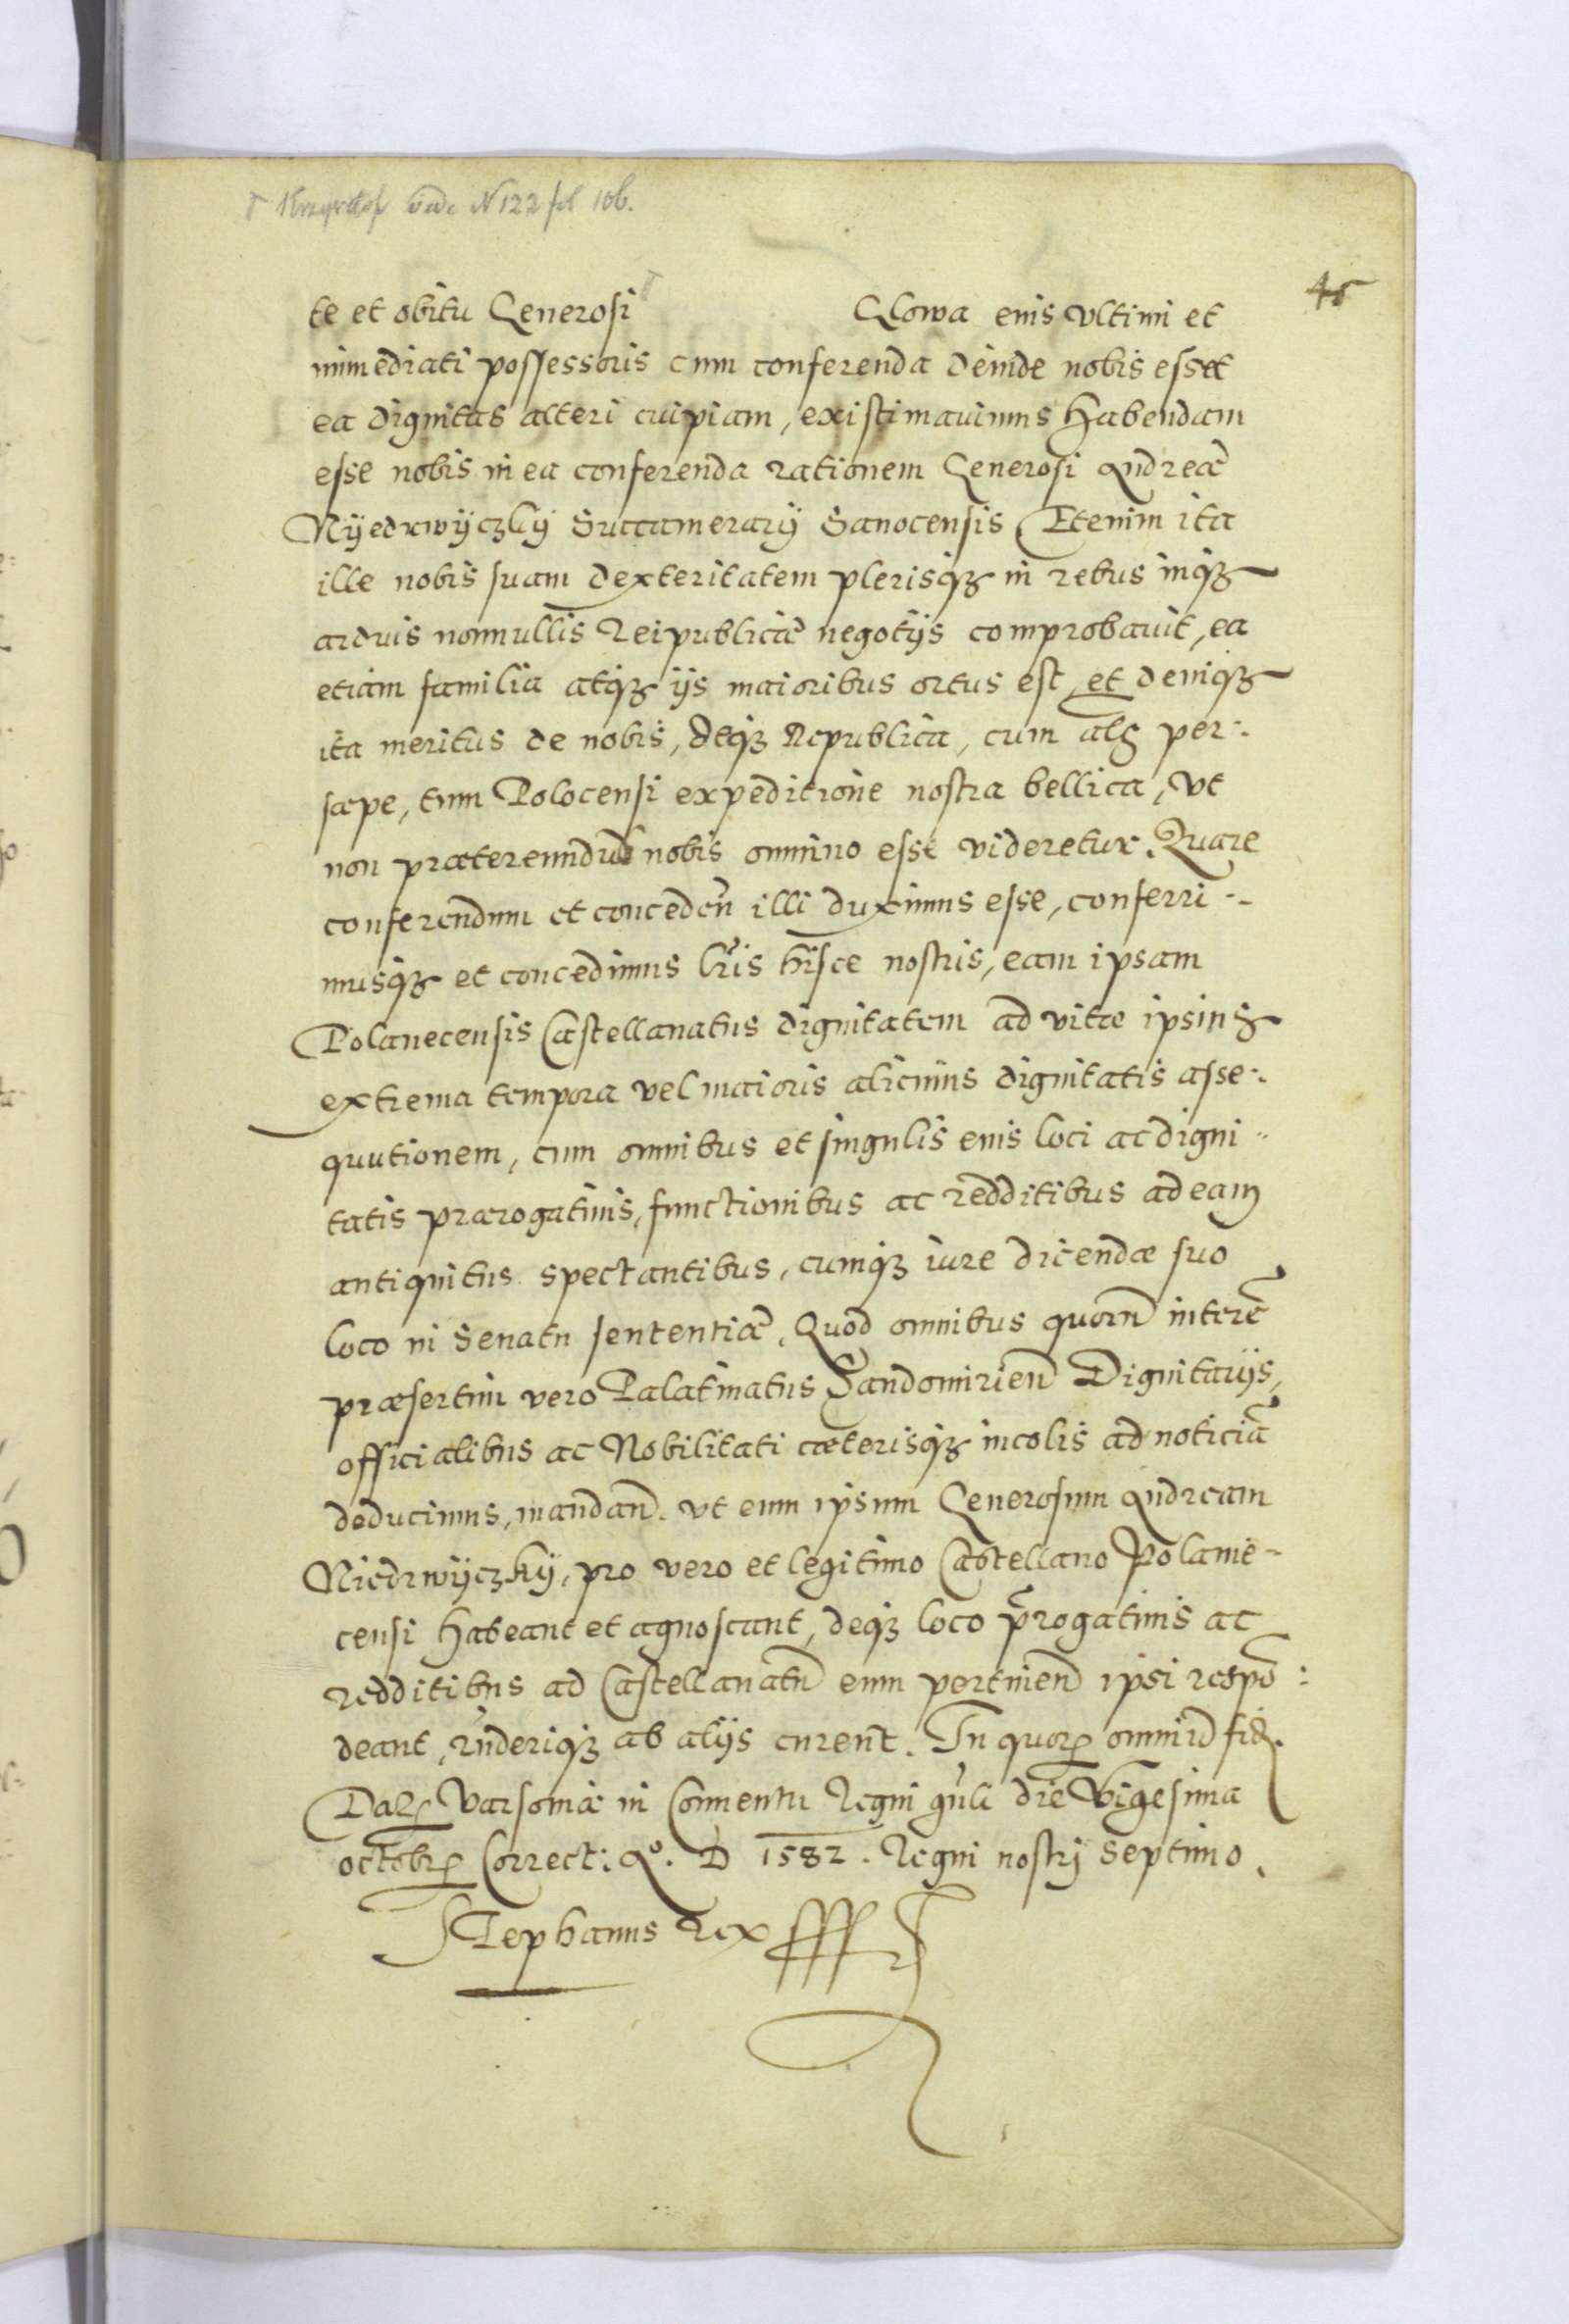 vide N 122 fol 106.
45
te et obitu Generosi Glowa eius vltimi et
immediati possessoris cum conferenda deinde nobis esset
ea dignitas alteri cuipiam, existimauimus habendam
esse nobis in ea conferenda rationem Generosi Andreæ
Nÿedrwÿczkÿ Succamerarÿ Sanocensis Etenim ita
ille nobis suam dexteritatem plerisq3 in rebus inq3
arduis nonnullis Reipublicæ negotÿs comprobauit, ea
etiam familia atq3 ÿs maioribus ortus est, et deniq3
ita meritus de nobis, deq3 Republica, cum als per-
sæpe, tum Polocensi expeditione nostra bellica, vt
non prætereundus nobis omnino esse videretur. Quare
conferendum et conceden illi duximus esse, conferri-
musq3 et concedimus lris hisce nostris, eam ipsam
Polanecensis Castellanatus dignitatem ad vitæ ipsius
extrema tempora vel maioris alicuius dignitatis asse-
quutionem, cum omnibus et singulis eius loci ac digni-
tatis prærogatiuis, functionibus ac redditibus ad eam
antiquitus spectantibus, cumq3 iure dicendæ suo
loco in Senatu sententiæ, Quod omnibus quorū interē
præsertim vero Palatinatus Sandomirien Dignitarÿs,
officialibus ac Nobilitati cæterisq3 incolis ad noticiā
deducimus, mandan. vt eum ipsum Generosum Andream
Niedrwÿczkÿ, pro vero et legitimo Castellano Polanie-
censi habeant et agnoscant, deq3 loco prrogatiuis ac
redditibus ad Castellanatū eum pertinen ipsi respō:
deant, rnderiq3 ab alÿs curent. In quor omniū fid.
Dat Varsouiæ in Conuentu Regni gnli die Vigesima
octobr Correct: Ao. D 1582. Regni nostrj Septimo.
Stephanus Rex sssst